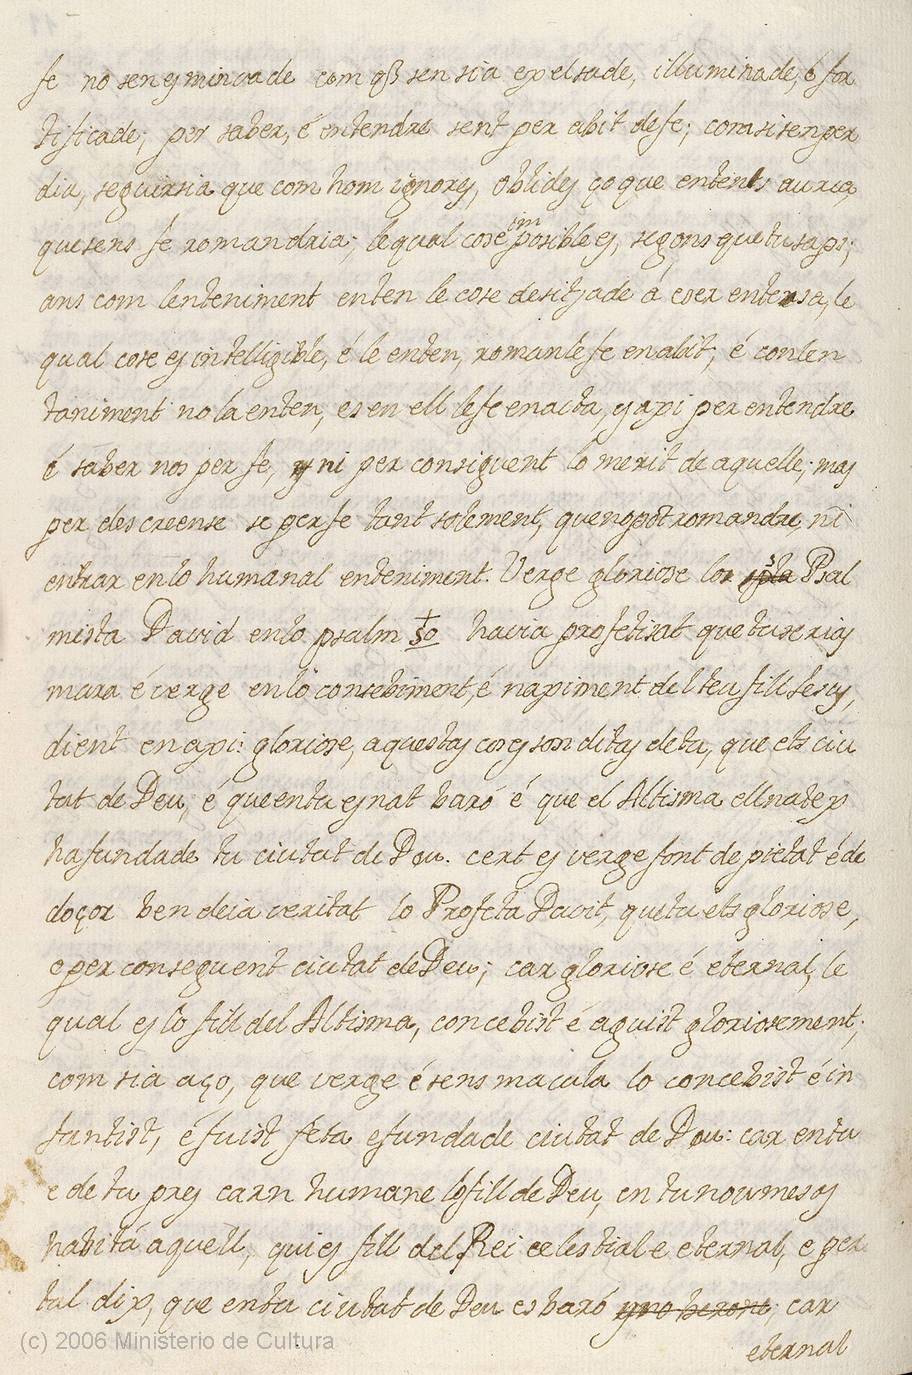 fe no sen es minvade com qß sen sia expelsade, illuminade, é for
tificade; per saber, é entendre sent per abit de fe; com si sen per
dia, seguirsia que com hom ignores, oblides ço que entents auria,
que sens fe romandria; le qual cose imposible es, segons que tu saps;
ans com lenteniment enten le cose desitjade á esser entensa, le
qual cose es intelligible, é le enten, roman le fe en abit, é con len
taniment no la enten, es en ell le fe en acta, y axi per entendre
é saber nos per fe, y ni per consiguent lo merit de aquelle; mas
per descreense se per fe tant solement, que no pot romandre, ni
entrar en lo humanal enteniment. Verge gloriose lo Psal
mista David en lo psalm havia profetisat que tu serias
mara é verge en lo consebiment, é naximent del teu fill Jesus,
dient en axi: gloriose, aquestas coses son ditas de ta, que ets ciu
tat de Deu, é que en tu es nat baró é que el Altisma ell matex
ha fundade tu ciutat de Deu. cert es verge font de pietat é de
doçor ben deia veritat lo Profeta Davit, que tu ets gloriose,
e per conseguent ciutat de Deu; car gloriose é eternal, le
qual es lo fill del Altisma, concebist é aguist gloriosement;
com sia aço, que verge é sens macula lo concebist é in
fantist, é fuist feta e fundade ciutat de Deu: car en tu
e de tu pres carn humane lo fill de Deu, en tu nou mesos
habitá aquell, qui es fill del Rei celestial e eternal, e per
tal dix, que en tu ciutat de Deu es baró car
eternal
(c) 2006 Ministerio de Cultura